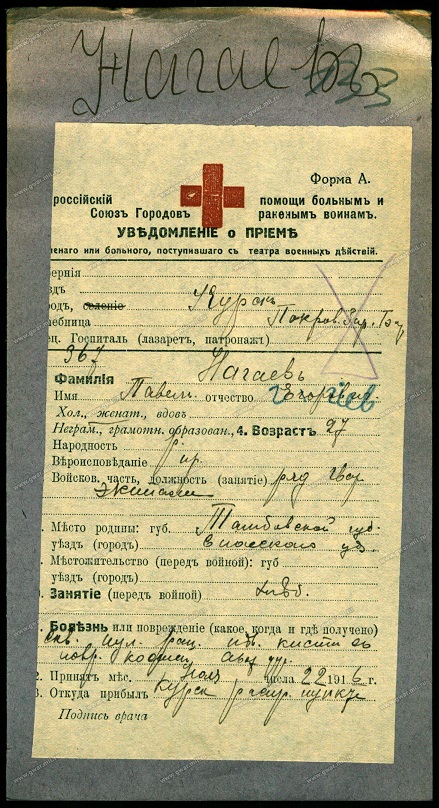 Нагаевъ
Форма А.
россійскій помощи больнымъ и
Союзъ Городовъ раненымъ воинамъ.
УВѢДОМЛЕНІЕ о ПРІЕМѢ
енаго или больного, поступившаго съ театра военныхъ дѣйствій.
ернія
здъ
родъ, селеніе Курскъ
ебница Покров.
ец. Госпиталь (лазаретъ, патронажъ)
367
Фамилія Нагаевъ
Имя Павелъ отчество Егоровичъ
Хол., женат., вдовъ
Неграм., грамотн. образован., 4. Возрастъ 27
Народность р
Вѣроисповѣданіе пр.
Войсков. часть, должность (занятіе) ряд
Мѣсто родины: губ. Тамбовской губ.
уѣздъ (город) Спасскаго уѣз.
Мѣстожительство (передъ войной): губ
уѣздъ (город)
Занятіе (передъ войной) хлѣб.
Болѣзнь или поврежденіе (какое, когда и гдѣ получено)
пул. ран. кисти съ
повр. костей
2. Принятъ мѣс. числа 22 1916 г.
3. Откуда прибылъ Курск распр. пункт
Подпись врача